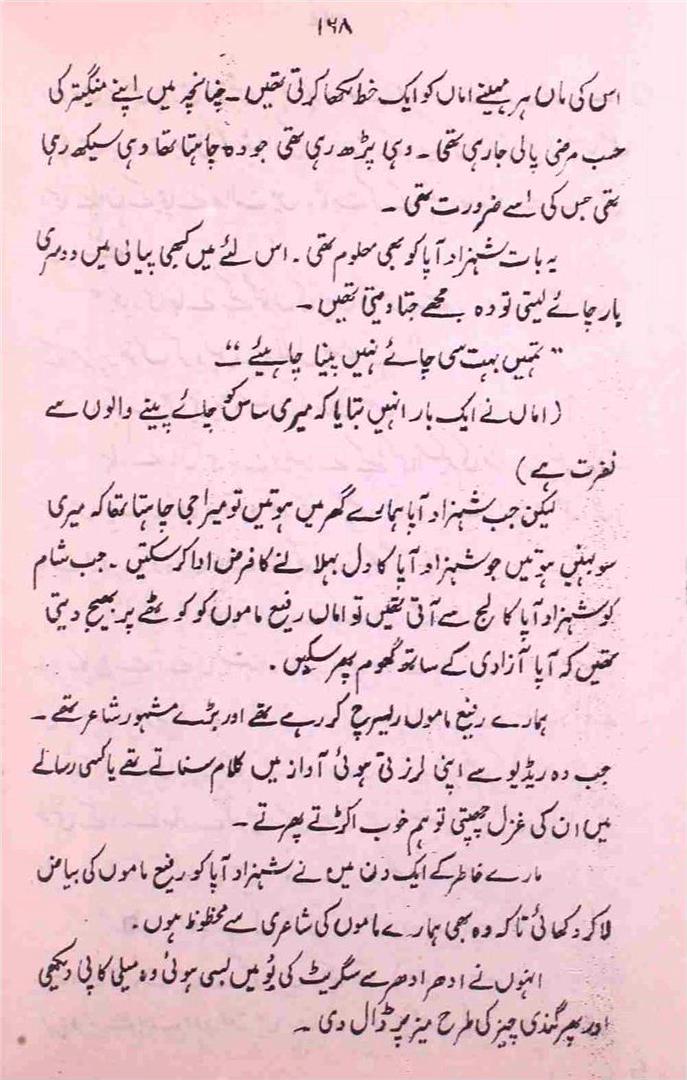 ۱۶۸
اس کی ماں ہر مہینے اماں کو ایک خط لکھا کرتی تھیں۔ چنانچہ میں اپنے منگیتر کی
حسب مرضی پالی جا رہی تھی۔ وہی پڑھ رہی تھی جو وہ چاہتا تھا وہی سیکھ رہی
تھی جس کی اسے ضرورت تھی۔
یہ بات شہزاد آپا کو بھی معلوم تھی۔ اس لئے میں کبھی پیالی میں دوسری
بار چائے لیتی تو وہ مجھے جتا دیتی تھیں۔
"تمہیں بہت سی چائے نہیں پینا چاہیئے"۔
(اماں نے ایک بار انہیں بتایا کہ میری ساس کو چائے پینے والوں سے
نفرت ہے)
لیکن جب شہزاد آپا ہمارے گھر میں ہوتیں تو میرا جی چاہتا تھا کہ میری
سو بہنیں ہوتیں جو شہزاد آپا کا دل بہلانے کا فرض ادا کر سکتیں۔ جب شام
کو شہزاد آپا کالج سے آتی تھیں تو اماں رفیع ماموں کو کوٹھے پر بھیج دیتی
تھیں کہ آپا آزادی کے ساتھ گھوم پھر سکیں۔
ہمارے رفیع ماموں ریسرچ کر رہے تھے اور بڑے مشہور شاعر تھے۔
جب وہ ریڈیو سے اپنی لرزتی ہوئی آواز میں کلام سناتے تھے یا کسی رسالے
میں ان کی غزل چھپتی تو ہم خوب اکڑتے پھرتے۔
مارے خاطر کے ایک دن میں نے شہزاد آپا کو رفیع ماموں کی بیاض
لا کر دکھائی تاکہ وہ بھی ہمارے ماموں کی شاعری سے محظوظ ہوں۔
انہوں نے ادھر ادھر سے سگریٹ کی بُو میں بسی ہوئی وہ میلی کاپی دیکھی
اور پھر گندی چیز کی طرح میز پر ڈال دی۔